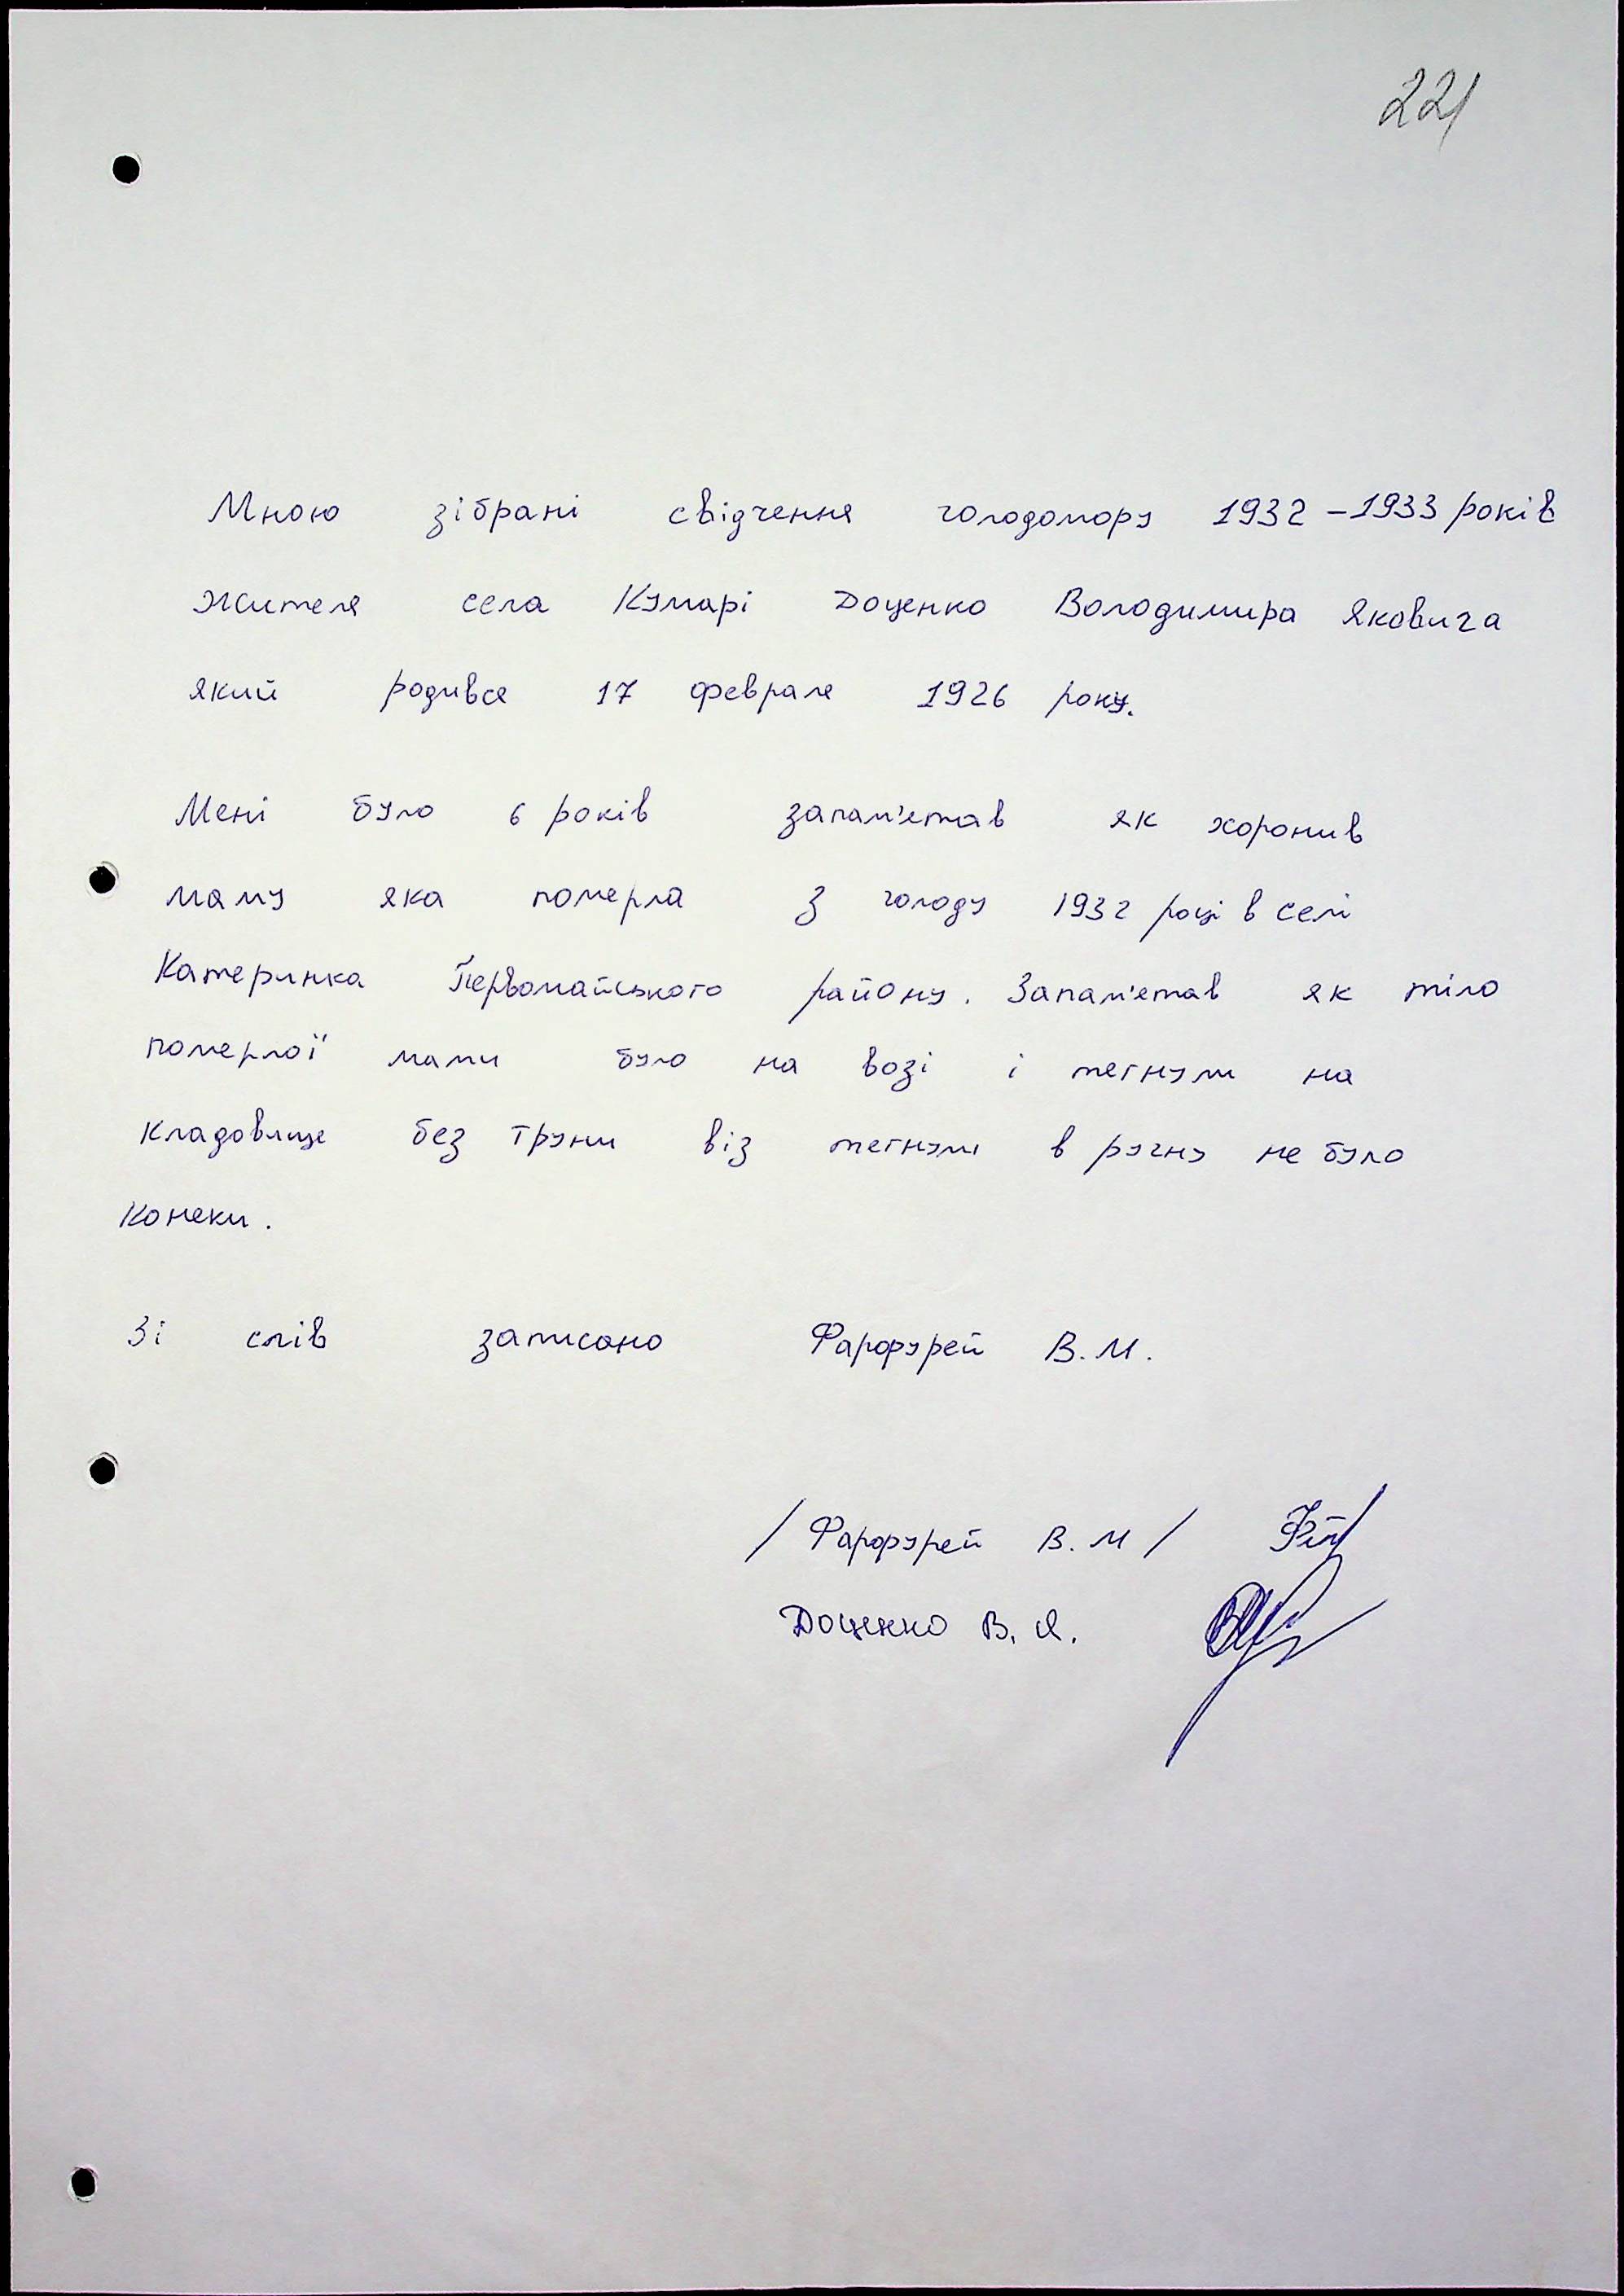 221
Мною зібрані свідчення голодомору 1932 – 1933 років
жителя села Кумарі Доценко Володимира Яковича
який родився 17 февраля 1926 року.
Мені було 6 років запам'ятав як хоронив
маму яка померла з голоду 1932 році в селі
Катеринка Первомайського району. Запам'ятав як тіло
померлої мами було на возі і тягнули на
кладовище без труни віз тягнули в ручну не було
конеки.
Зі слів записано Фарфурей В. М.
/ Фарфурей В. М /
Доценко В. Я.